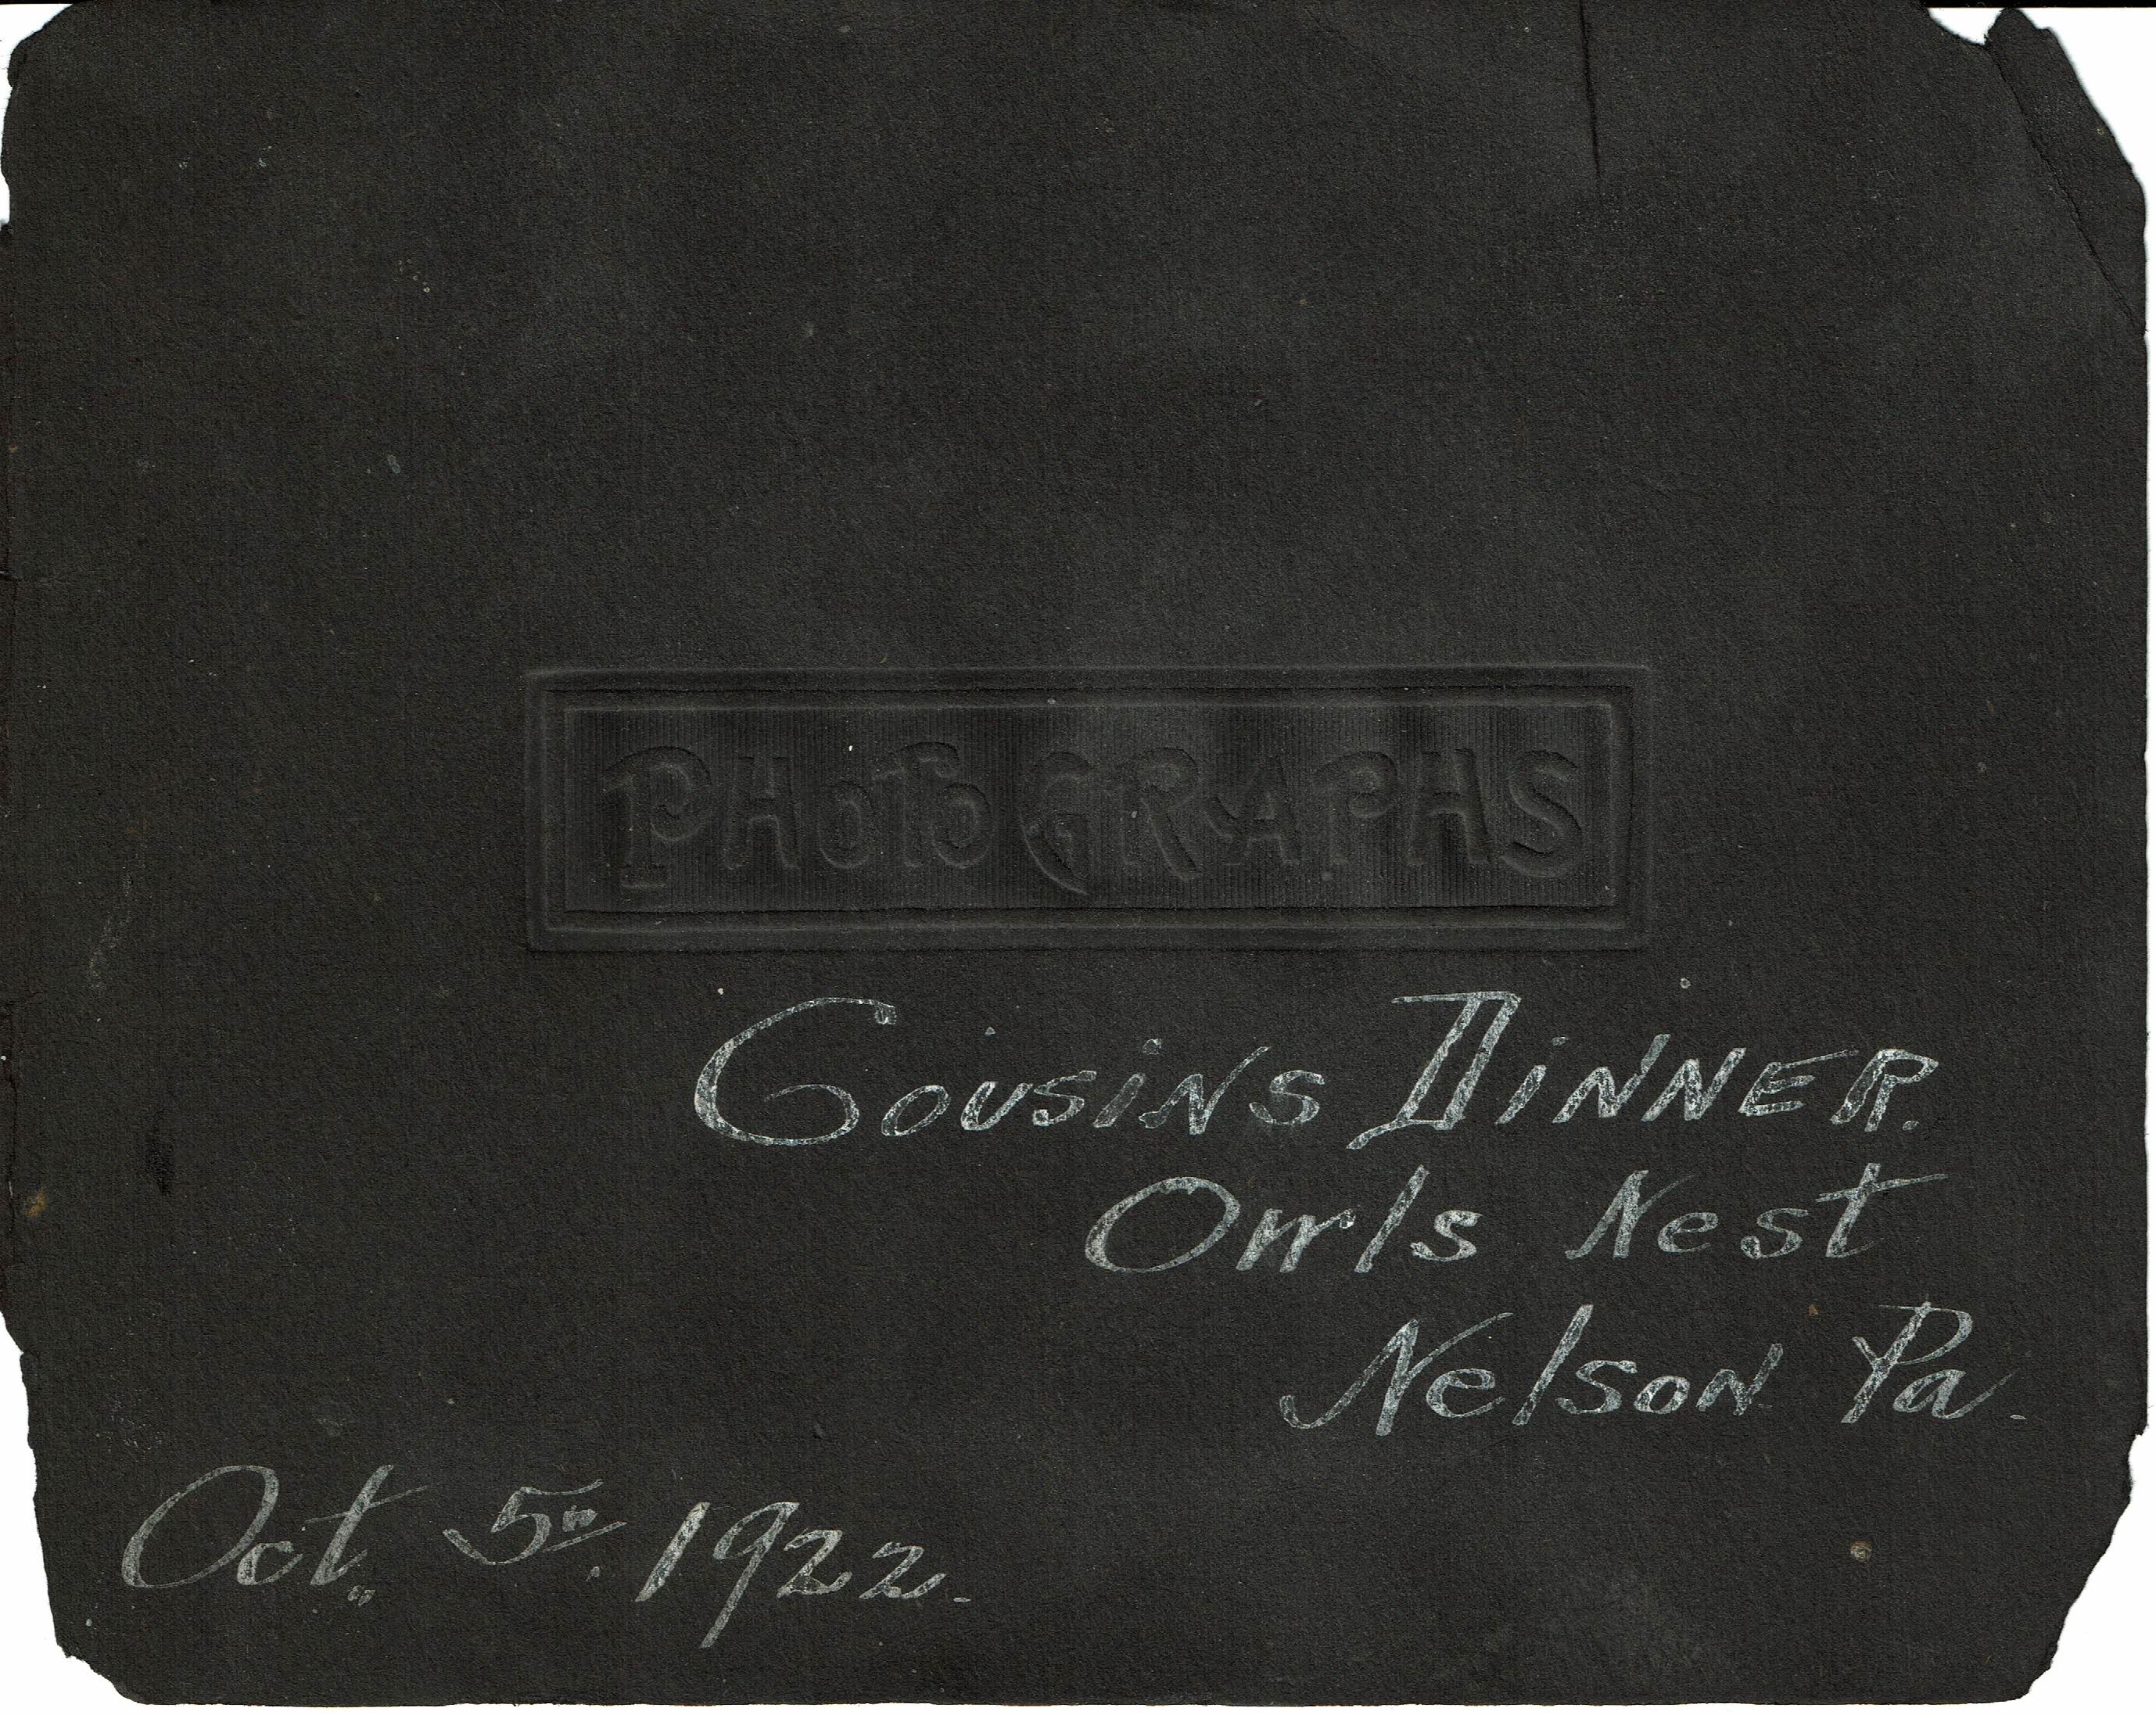 PHOTOGRAPHS
COUSINS DINNER.
Owls Nest
Nelson Pa.
Oct. 5th. 1922.